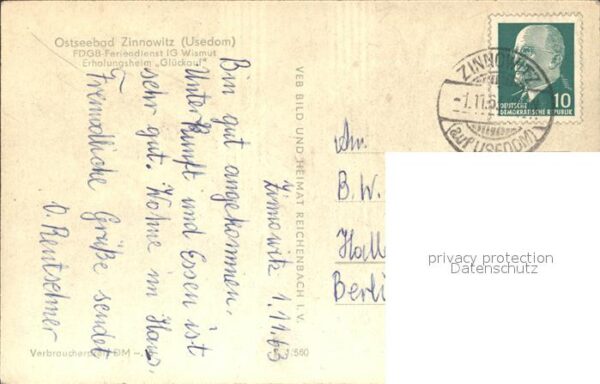 Ostseebad Zinnowitz (Usedom)
FDGB-Feriendienst IG Wismut
Erholungsheim „Glückauf“
Zinnowitz 1.11.63
Bin gut angekommen.
Unterkunft und Essen ist
sehr gut. Wohne im Haus
Freundliche Grüße sendet
O. Rentschner
Verbraucherpreis DM
VEB BILD UND HEIMAT REICHENBACH I. V.
1/560
ZINNOWITZ
(auf USEDOM)
DEUTSCHE
DEMOKRATISCHE REPUBLIK
10
An.
B. W.
Hall
Berli
privacy protection
Datenschutz